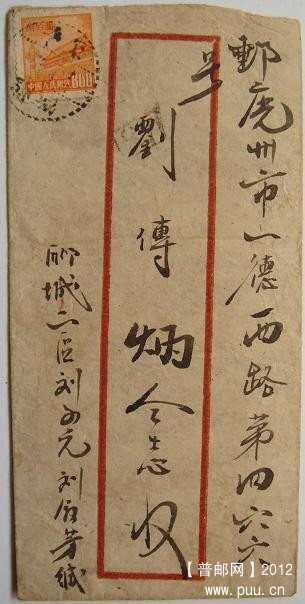 郵廣州市一德西路第四六六
号
劉傳炳仝志收
聊城区刘元刘芳缄
捌佰圓
中國人民郵政
800
【普邮网】2012
www.puu.cn